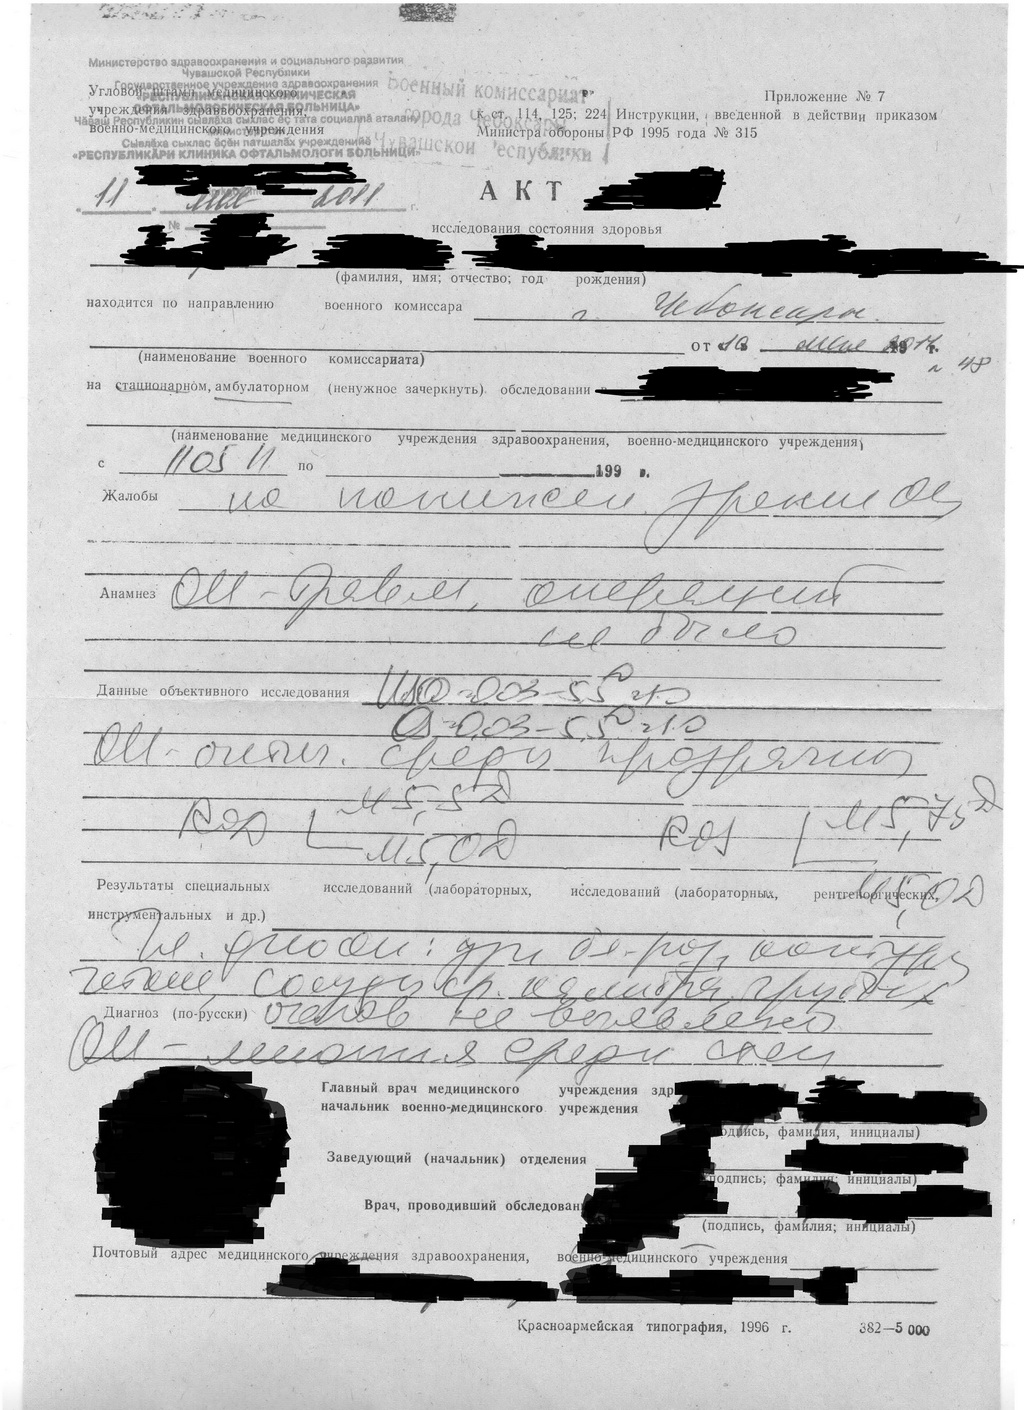 Министерство здравоохранения и социального развития
Чувашской Республики
Государственное учреждение здравоохранения
«РЕСПУБЛИКАНСКАЯ КЛИНИЧЕСКАЯ
ОФТАЛЬМОЛОГИЧЕСКАЯ БОЛЬНИЦА»
«РЕСПУБЛИКӐРИ КЛИНИКА ОФТАЛЬМОЛОГИ БОЛЬНИЦИ»
Угловой штамп медицинского
учреждения здравоохранения,
военно-медицинского учреждения
Военный комиссариат
города Чебоксары
Чувашской Республики
Приложение № 7
к ст. 114, 125; 224 Инструкции, введенной в действии приказом
Министра обороны РФ 1995 года № 315
11 мая 2011 г.
№
АКТ
исследования состояния здоровья
(фамилия, имя; отчество; год рождения)
находится по направлению военного комиссара г. Чебоксары.
от «10 мая 2011 г.
(наименование военного комиссариата)
№ 48
на стационарном, амбулаторном (ненужное зачеркнуть) обследовании в
(наименование медицинского учреждения здравоохранения, военно-медицинского учреждения)
с 11 05 11 по 199 г.
Жалобы на понижен. зрения ОИ
Анамнез ОИ - травм, операций
не было
Данные объективного исследования VisOD=0,03-5,5D=1.0
OS=0,03-5,5D=1.0
ОИ - оптич. среды прозрачны
ROD M5,5D ROS M5,75D
M5,0D M5,0D
Результаты специальных исследований (лабораторных, исследований (лабораторных, рентгеноргических,
инструментальных и др.)
Гл. дно ОИ: дзн бл-роз, контуры
четкие, сосуды ср. калибра, грубых
Диагноз (по-русски) очагов не выявлено
ОИ - миопия средн степ
Главный врач медицинского учреждения здр
начальник военно-медицинского учреждения
(подпись, фамилия, инициалы)
Заведующий (начальник) отделения
(подпись; фамилия; инициалы)
Врач, проводивший обследован
(подпись, фамилия; инициалы)
Почтовый адрес медицинского учреждения здравоохранения, военно-медицинского учреждения
Красноармейская типография, 1996 г. 382—5 000